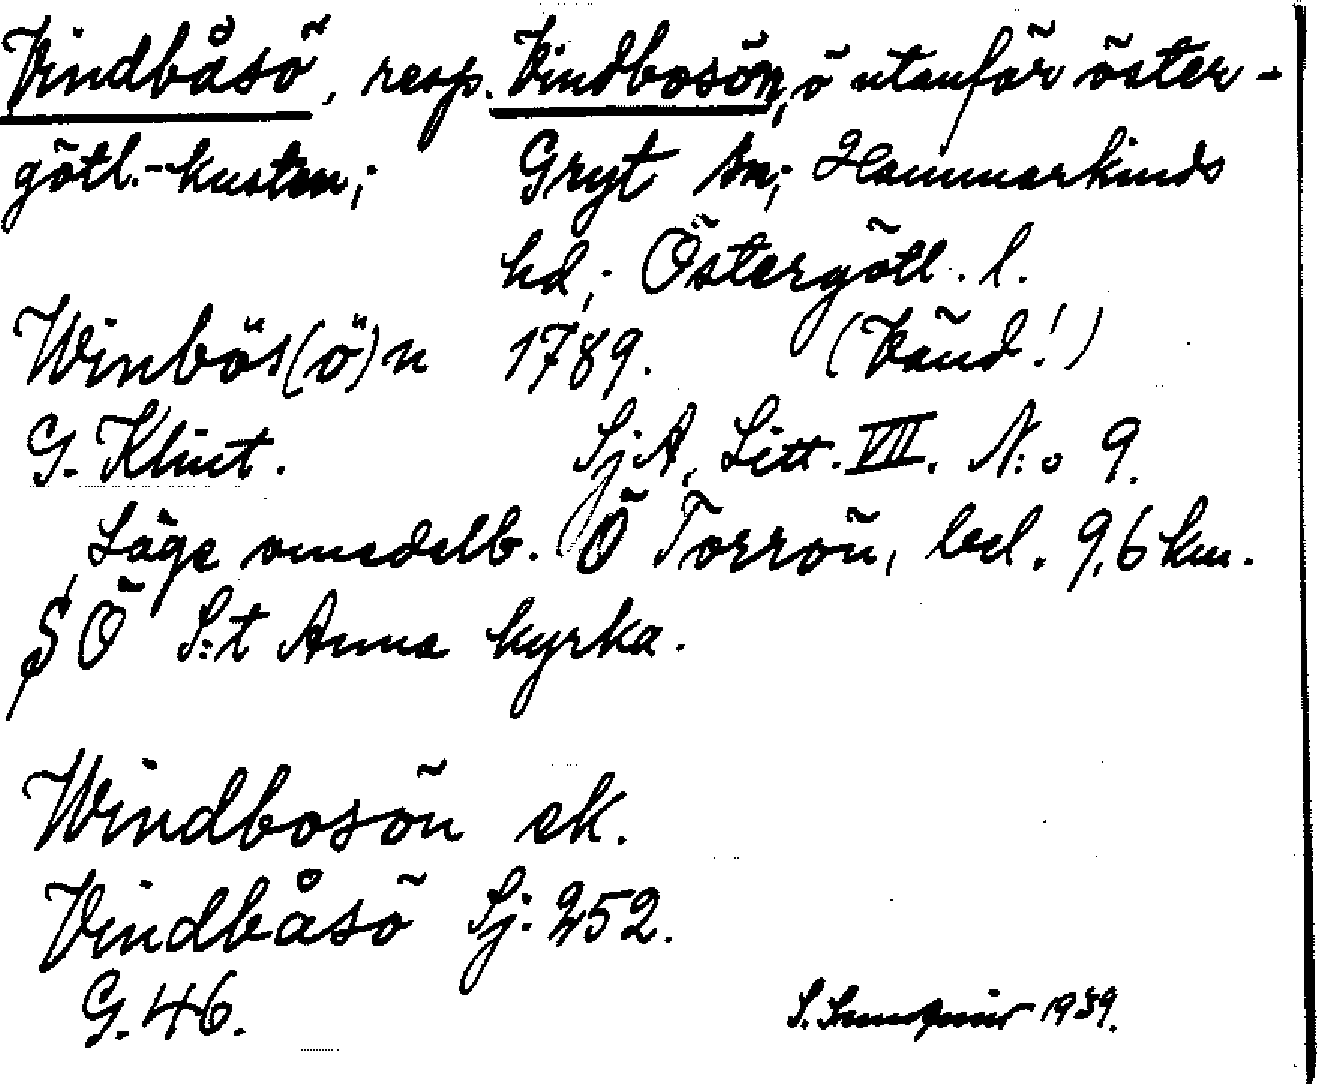 Vindbåsö, resp. Vindbosön, ö utanför öster-
götl.-kusten; Gryt sn; Hammarkinds
hd; Östergötl. l.
Winbös(ö)n 1789. (Vänd!)
G. Klint. SjA, Litt. VII. N:o 9.
Läge omedelb. Ö Torrön, bel. 9,6 km.
S Ö S:t Anna kyrka.
Windbosön ek.
Vindbåsö Sj. 252.
G. 46.
S. 1939.